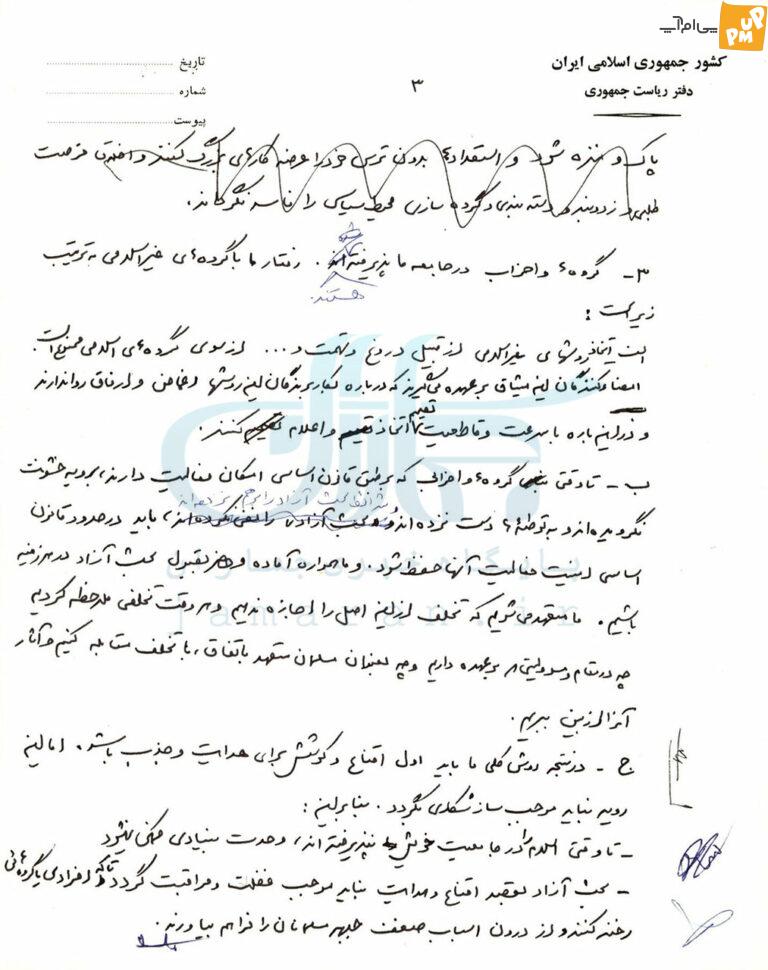 پی‌ام‌آپ
PM UP
کشور جمهوری اسلامی ایران
دفتر ریاست جمهوری
تاریخ
شماره
پیوست
۳
پاک و منزه شود و استعدادها بدون ترس خود را عرضه کارهای بزرگ کنند و اختلاق فرصت
طلبی و زدوبند و دسته بندی و گروه سازی محیط سیاسی را فاسد نگرداند.
۳- گروهها و احزاب در جامعه ما پذیرفته شده هستند. رفتار ما با گروه‌های غیراسلامی به ترتیب
زیر است :
الف - اتخاذ روشهای غیراسلامی از قبیل دروغ و تهمت و ... از سوی گروه‌های اسلامی ممنوع است.
امضاءکنندگان این میثاق بر عهده می‌گیرند که درباره بکاربرندگان این روشها اغماض و ارفاق روا ندارند
و در این باره با سرعت و قاطعیت اتخاذ تصمیم و اعلام کنند.
ب - تا وقتی گروهها و احزابی که بر طبق قانون اساسی امکان فعالیت دارند، برویه خشونت
شرائط بحث آزاد را
نگرویده‌اند و به توطئه‌ها دست نزده‌اند و بحث آزاد را نفی نکرده‌اند، باید در حدود قانون
اساسی امنیت فعالیت آنها حفظ شود. و ما همواره آماده و بقبول بحث آزاد در هر زمینه
باشیم. ما متعهد می‌شویم که تخلف از این اصل را اجازه ندهیم و هر وقت تخلفی ملاحظه کردیم
چه در مقام و مسئولیتی که بر عهده داریم و چه بعنوان مسلمان متعهد باتفاق، با تخلف مقابله کنیم و آثار
آنرا از بین ببریم.
ج - در نتیجه روش کلی ما باید اول اقناع و کوشش برای هدایت و جذب باشد. اما این
رویه نباید موجب سازشکاری گردد. بنابراین :
- تا وقتی اسلام را در جامعیت خویش نپذیرفته‌اند، وحدت بنیادی ممکن نیشود
- بحث آزاد بقصد اقناع و هدایت نباید موجب غفلت و مراقبت گردد تا که افرادی یا گروه‌هائی
رخنه کنند و از درون اسباب ضعف جبهه مسلمانان را فراهم بیاورند.
جماران
پایگاه خبری جماران
jamaran.ir